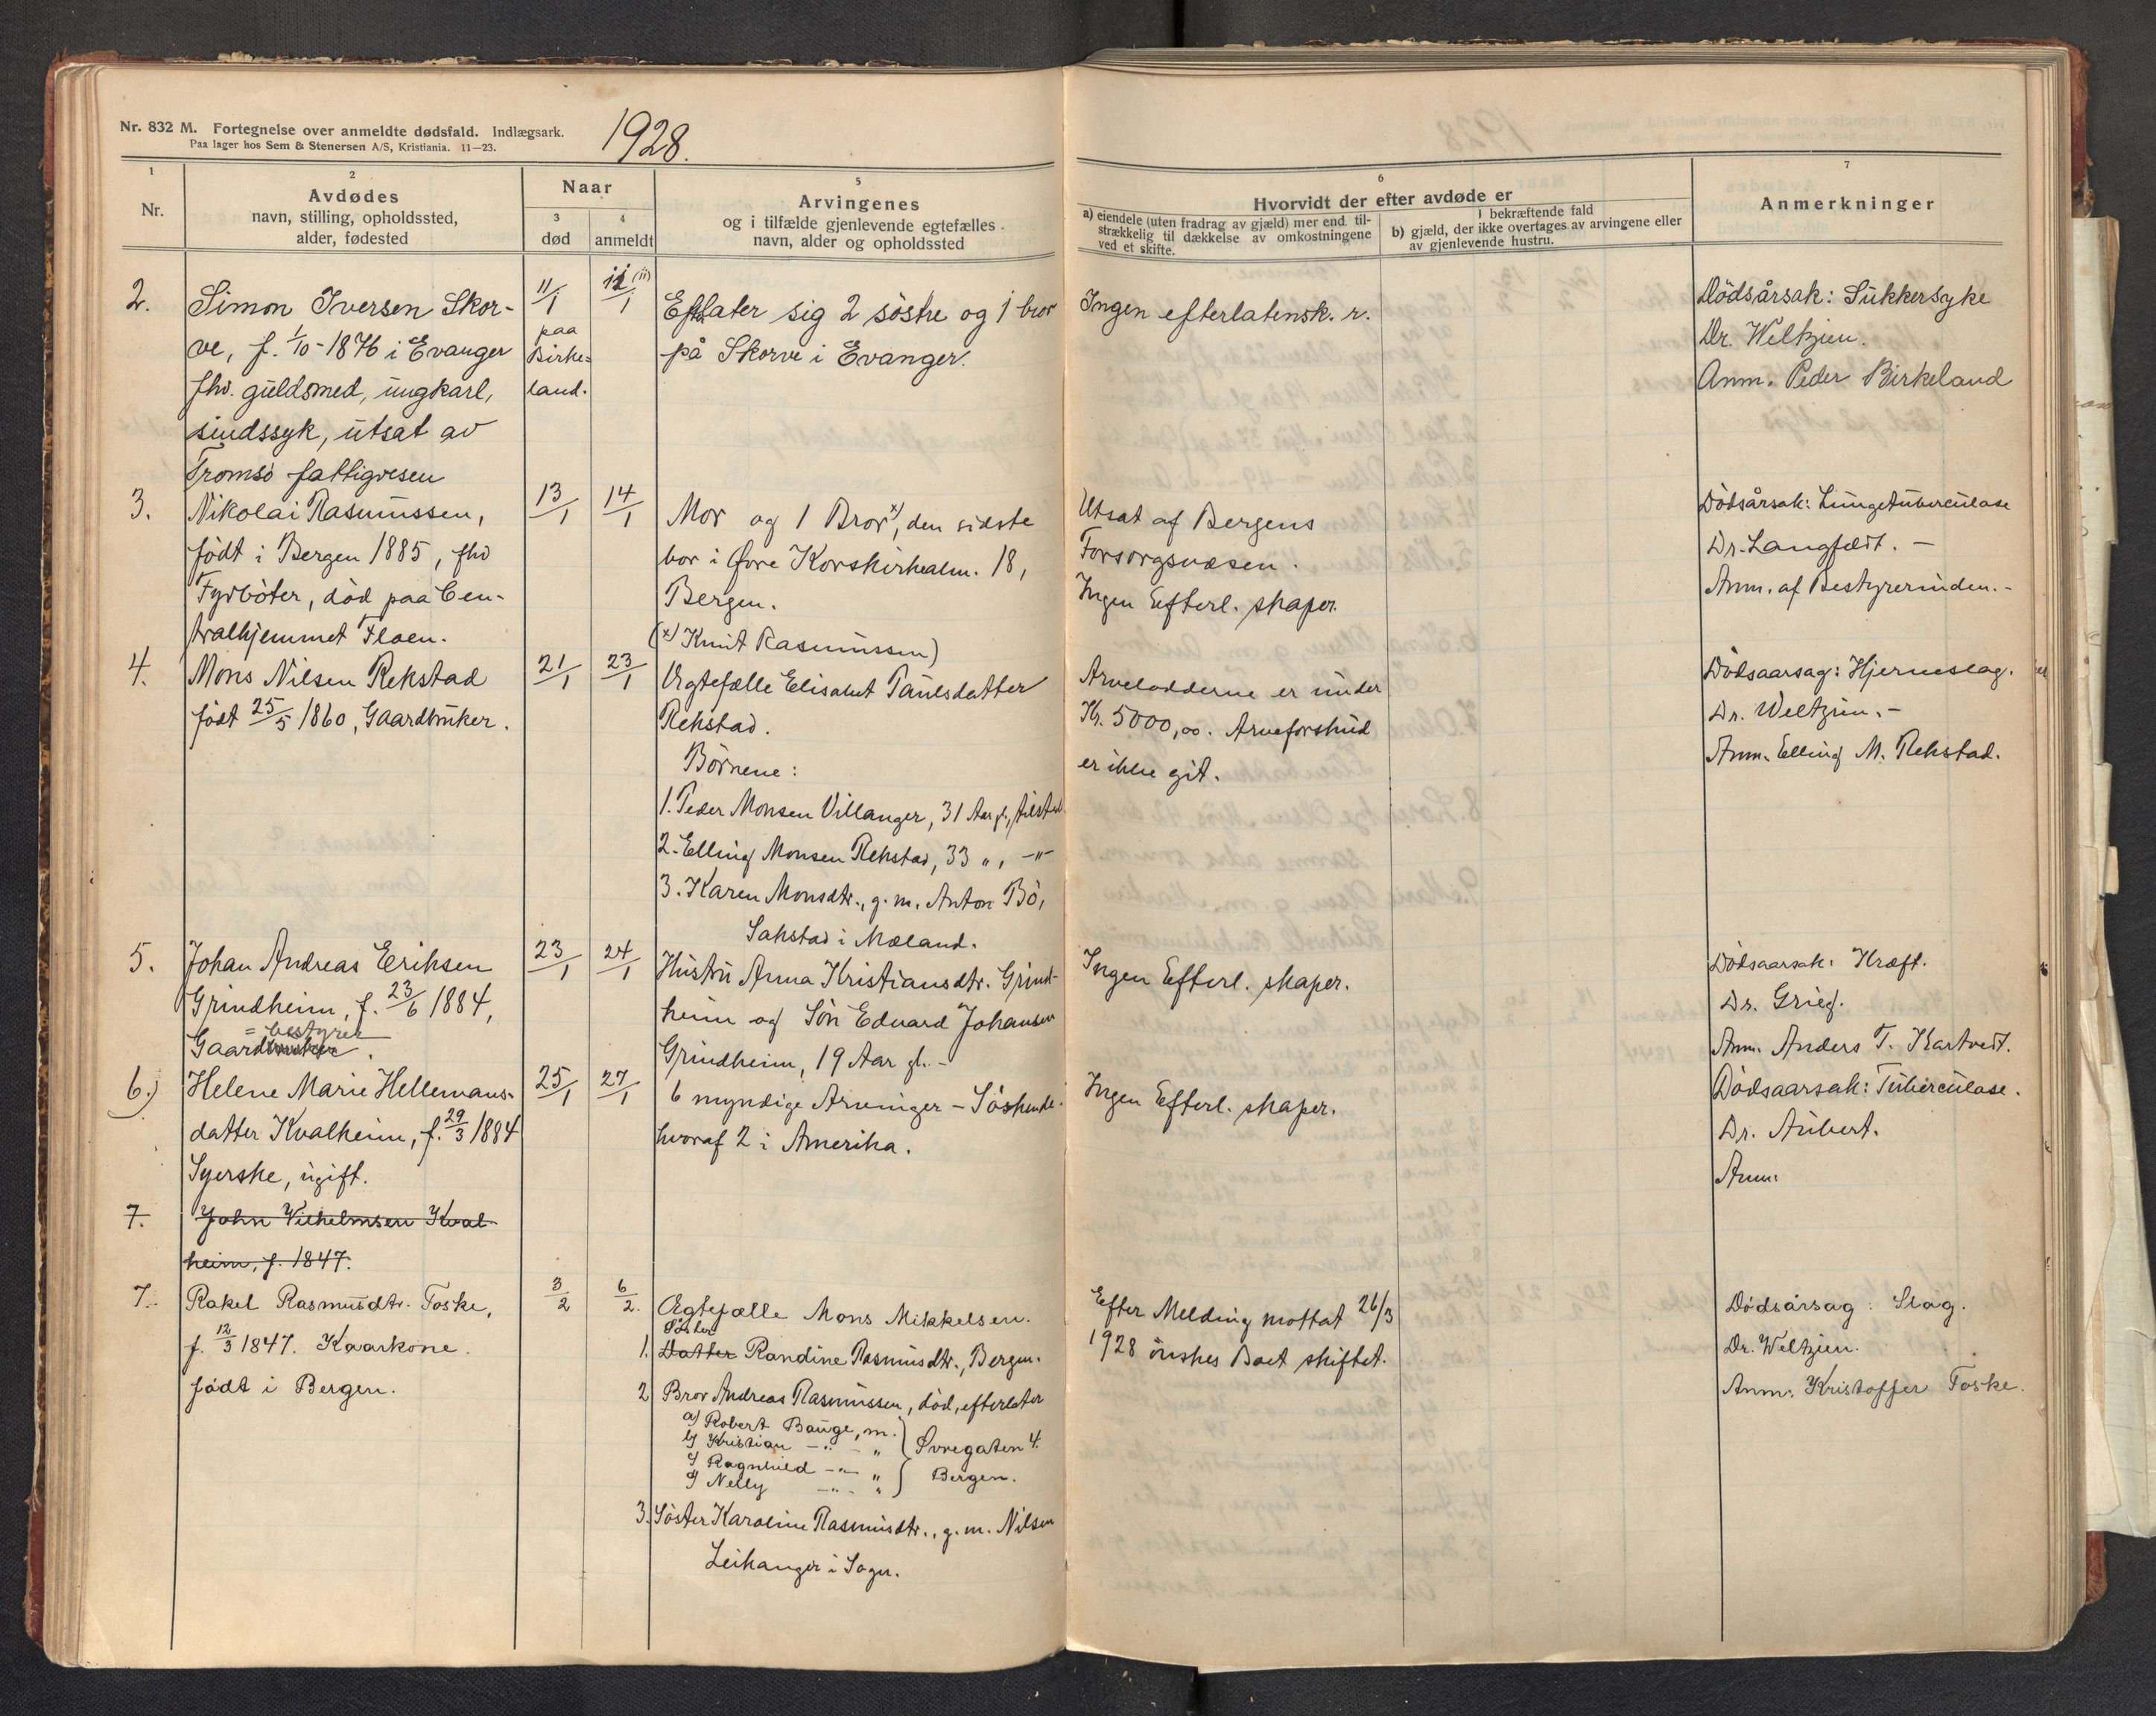 Nr. 832 M. Fortegnelse over anmeldte dødsfald. Indlægsark.
Paa lager hos Sem & Stenersen A/S, Kristiania. 11—23.
1928.
1
Nr.
2
Avdødes
navn, stilling, opholdssted,
alder, fødested
Naar
3
død
4
anmeldt
5
Arvingenes
og i tilfælde gjenlevende egtefælles
navn, alder og opholdssted
6
Hvorvidt der efter avdøde er
a) eiendele (uten fradrag av gjæld) mer end til-
strækkelig til dækkelse av omkostningene
ved et skifte.
I bekræftende fald
b) gjæld, der ikke overtages av arvingene eller
av gjenlevende hustru.
7
Anmerkninger
2.
Simon Iversen Skor-
ve, f. 1/10-1876 i Evanger
fhv. guldsmed, ungkarl,
sindssyk, utsat av
Tromsö fattigvesen
11/1
paa
Birke=
land.
12 (11)/1
Efterlater sig 2 söstre og 1 bror
på Skorve i Evanger.
Ingen efterlatensk. r.
Dödsårsak: Sukkersyke
Dr. Weltzien.
Anm. Peder Birkeland
3.
Nikolai Rasmussen,
født i Bergen 1885, fhv
Fyrböter, död paa Cen-
tralhjemmet Floen.
13/1
14/1
Mor og 1 Bror x), den sidste
bor i Øvre Korskirkealm. 18,
Bergen.
(x) Knut Rasmussen)
Utsat af Bergens
Forsorgsvæsen.
Ingen Efterl. skaper.
Dödsårsak: Lungetuberculose
Dr. Langfeldt. —
Anm. af Bestyrerinden. -
4.
Mons Nilsen Rekstad
født 25/5 1860, Gaardbruker.
21/1
23/1
Ægtefælle Elisabet Paulsdatter
Rekstad.
Börnene:
1. Peder Monsen Villanger, 31 Aar gl.,
2. Elling Monsen Rekstad, 33 „ , -"-
3. Karen Monsdtr., g. m. Anton Bö,
Sakstad i Mæland.
Arvelodderne er under
Kr. 5000,oo. Arveforskud
er ikke git.
Dödsaarsag: Hjerneslag.
Dr. Weltzien. -
Anm. Elling M. Rekstad.
5.
Johan Andreas Eriksen
Grindheim, f. 23/6 1884,
= bestyrer
Gaardbruker.
23/1
24/1
Hustru Anna Kristiansdtr. Grind-
heim og Sön Edvard Johansen
Grindheim, 19 Aar gl. -
Ingen Efterl. skaper.
Dödsaarsak: Kræft.
Dr. Grieg.
Anm. Anders T. Kartveit.
6.)
Helene Marie Hellemans-
datter Kvalheim, f. 29/3 1884
Syerske, ugift.
25/1
27/1
6 myndige Arvinger - Söskende
hvoraf 2 i Amerika.
Ingen Efterl. skaper.
Dödsaarsak: Tuberculose.
Dr. Aubert.
Anm:
7.
John Vilhelmsen Kval-
heim, f. 1847.
7.
Rakel Rasmusdtr. Toske,
f. 12/3 1847. Kaarkone.
født i Bergen.
3/2
6/2.
Ægtefælle Mons Mikkelsen.
Söster
1. Datter Randine Rasmusdtr., Bergen.
2 Bror Andreas Rasmussen, död, efterlater
a) Robert Bauge, m.
b) Kristian -"- "
c) Ragnhild -"- "
d) Nelly -"- "
Øvregaten 4.
Bergen.
3. Söster Karoline Rasmusdtr., g. m. Nilsen
Leikanger i Sogn.
Efter Melding mottat 26/3
1928 önskes Boet skiftet.
Dödsårsag: Slag.
Dr. Weltzien.
Anm: Kristoffer Toske.